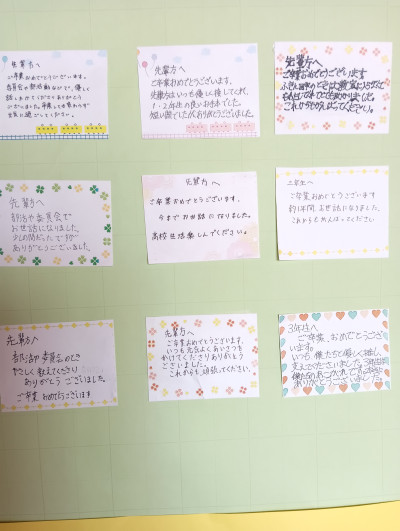 先輩方へ
ご卒業おめでとうございます。
委員会や部活動などで、優しく
話しかけてくださりありがとう
ございました。卒業しても変わらず
元気に過ごしてください。
先輩方へ
ご卒業おめでとうございます。
先輩方はいつも優しく接してくれ、
1・2年生の良いお手本でした。
短い間でしたがありがとうございました。
先輩方へ
ご卒業おめでとうございます
これからもがんばってください。
先輩方へ
部活や委員会で
お世話になりました。
少しの間だったですが
ありがとうございました。
先輩方へ
ご卒業おめでとうございます。
今までお世話になりました。
高校生活楽しんでください。
三年生へ
ご卒業おめでとうございます
約1年間、お世話になりました。
これからもがんばってください
先輩方へ
委員会のとき
やさしく教えてくださり
ありがとうございました。
ご卒業おめでとうございます
先輩方へ
ご卒業おめでとうございます。
いつも元気よくあいさつを
かけてくださりありがとう
ございました。
これからも頑張ってください。
3年生へ
ご卒業、おめでとうござ
います。
いつも、僕たちに優しく接し、
支えてくださいました。3年生は
僕たちのあこがれです。
ありがとうございました。